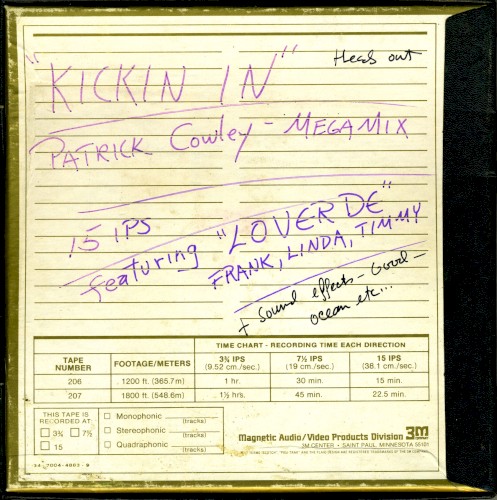 Heads out
"KICKIN IN"
PATRICK Cowley - MEGAMIX
15 IPS
featuring "LOVERDE"
FRANK, LINDA, TIMMY
+ sound effects - Good -
ocean etc...
TIME CHART - RECORDING TIME EACH DIRECTION
TAPE NUMBER FOOTAGE/METERS 3¾ IPS (9.52 cm./sec.) 7½ IPS (19 cm./sec.) 15 IPS (38.1 cm./sec.)
206 1200 ft. (365.7m) 1 hr. 30 min. 15 min.
207 1800 ft. (548.6m) 1½ hrs. 45 min. 22.5 min.
THIS TAPE IS RECORDED AT
3¾ 7½
15
Monophonic (tracks)
Stereophonic (tracks)
Quadraphonic (tracks)
Magnetic Audio/Video Products Division 3M
3M CENTER • SAINT PAUL, MINNESOTA 55101